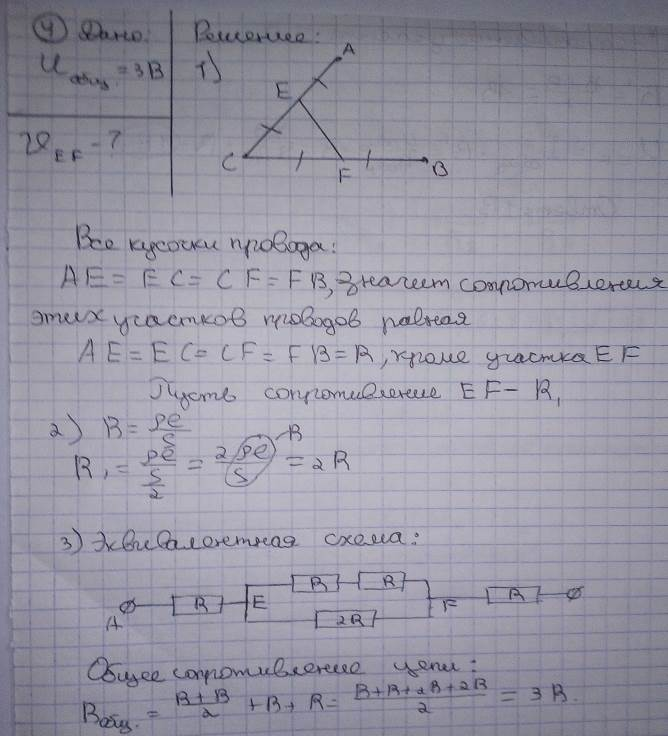 ④ Дано: Решение:
U общ. = 3В 1)
𝒰 EF - ?
A
E
C
F
B
Все кусочки провода:
AE = EC = CF = FB, значит сопротивления
этих участков проводов равная
AE = EC = CF = FB = R, кроме участка EF
Пусть сопротивление EF - R₁
2) R = ρℓ/S
R₁ = ρℓ/(S/2) = 2ρℓ/S = 2R
R
3) Эквивалентная схема:
R R
A R E F R
2R
Общее сопротивление цепи:
Rобщ. = (R + R)/2 + R + R = (R + R + 2R + 2R)/2 = 3R.